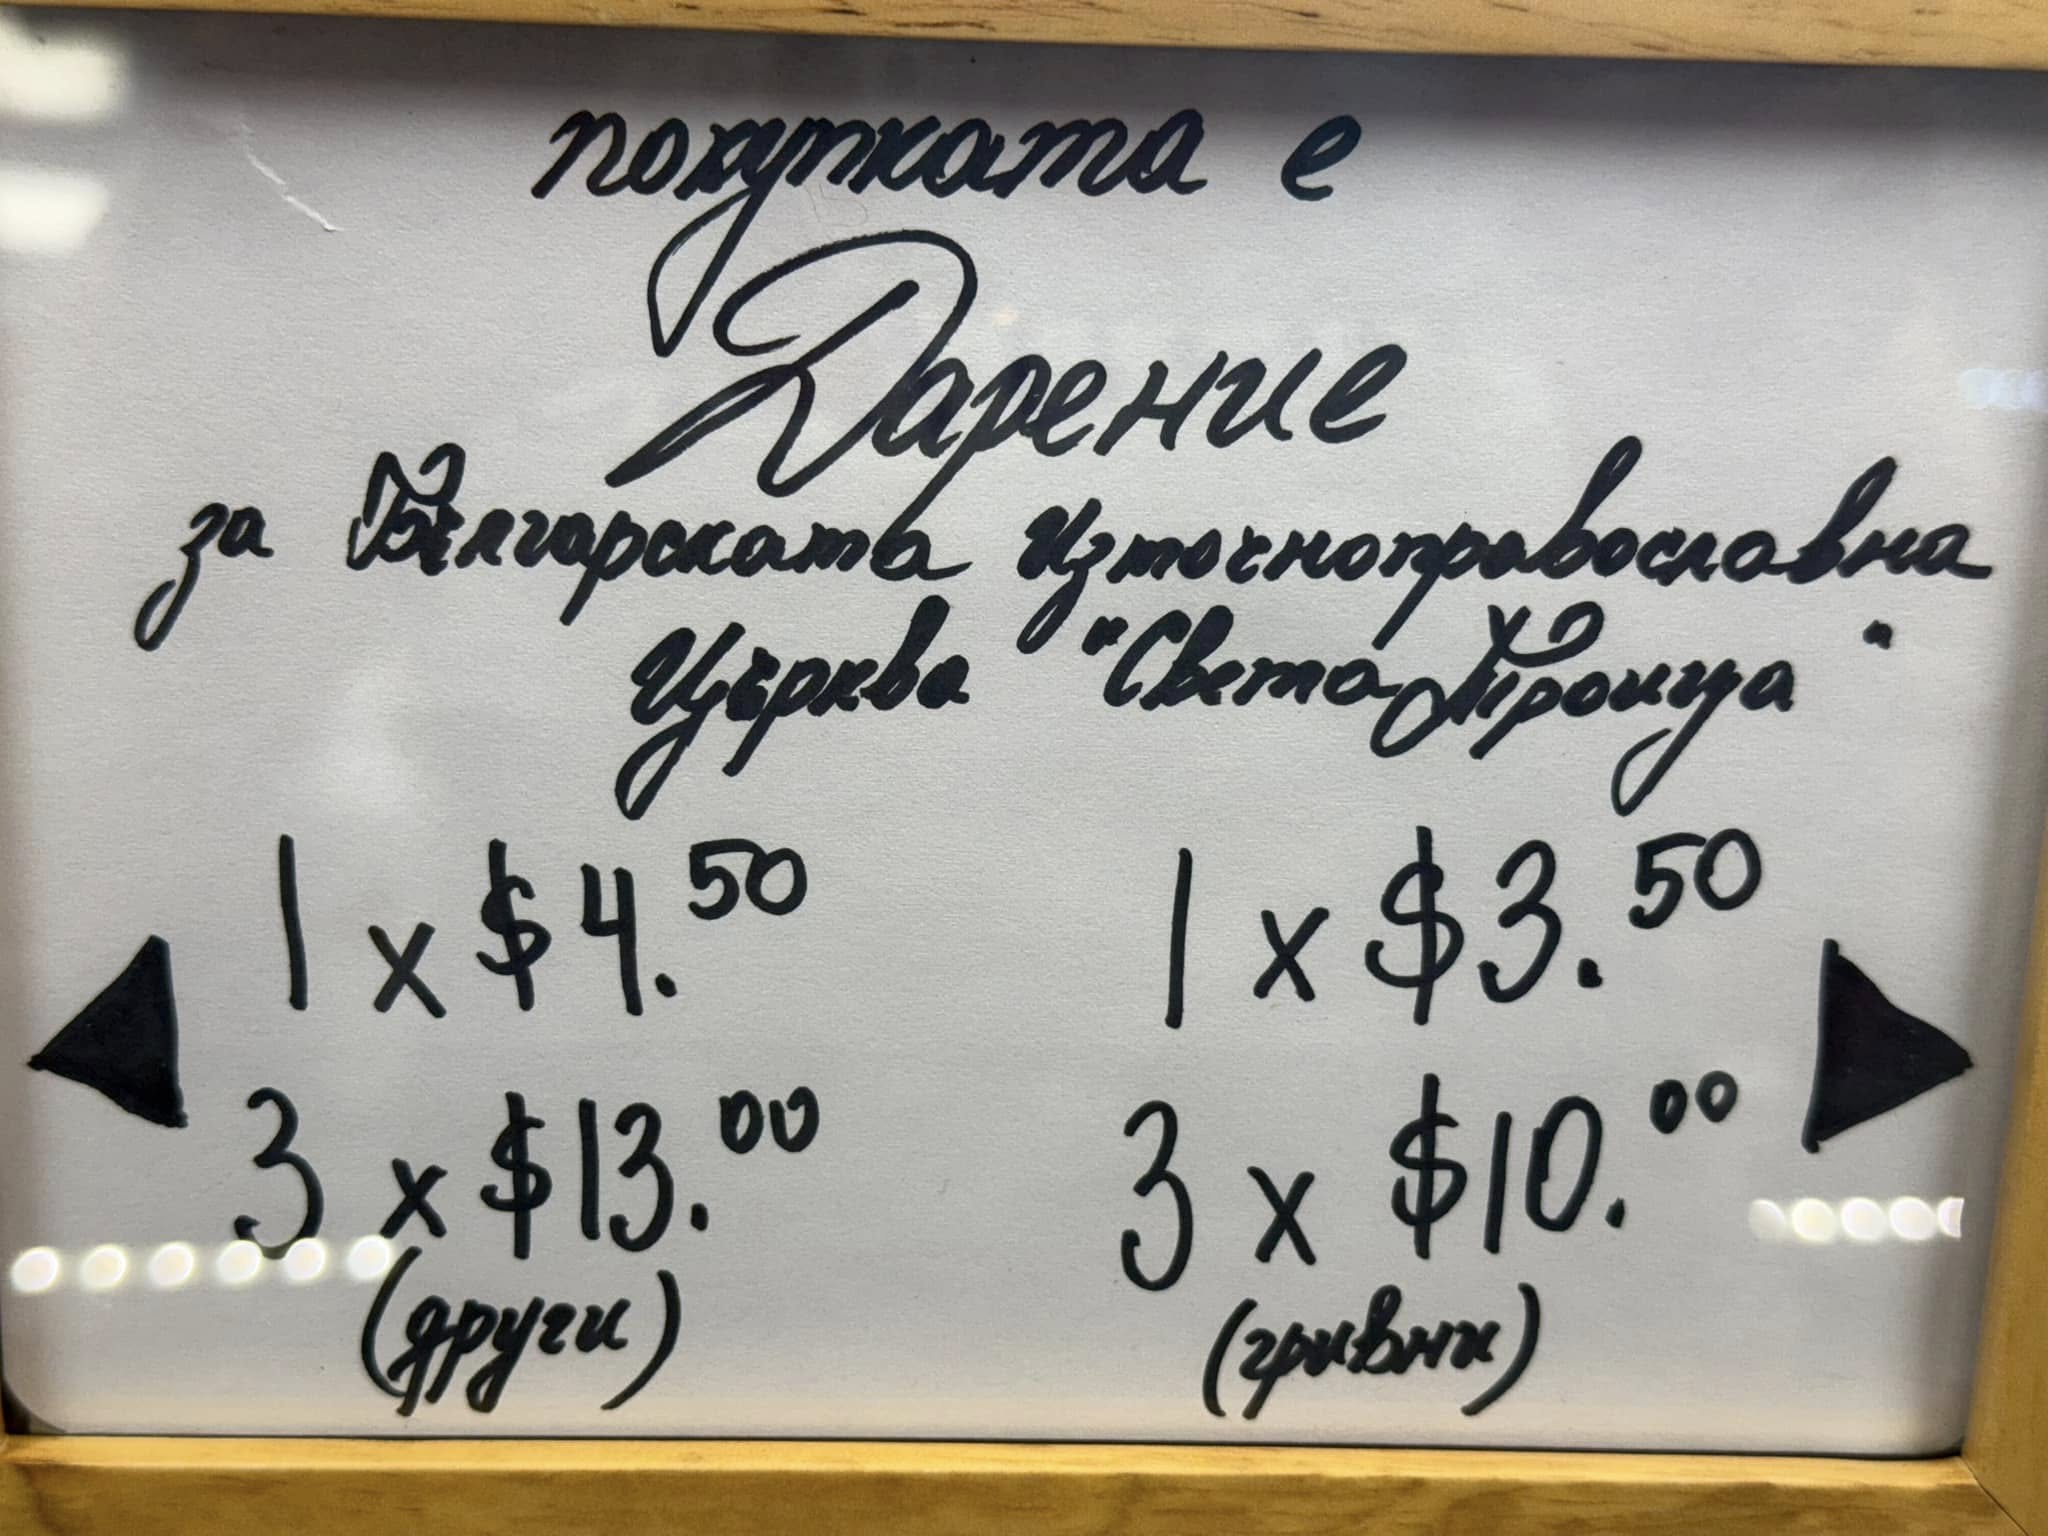 покупката е
Дарение
за Българската Източноправославна
Църква "Света Троица"
1 x $4.50
1 x $3.50
3 x $13.00
3 x $10.00
(други)
(гривни)